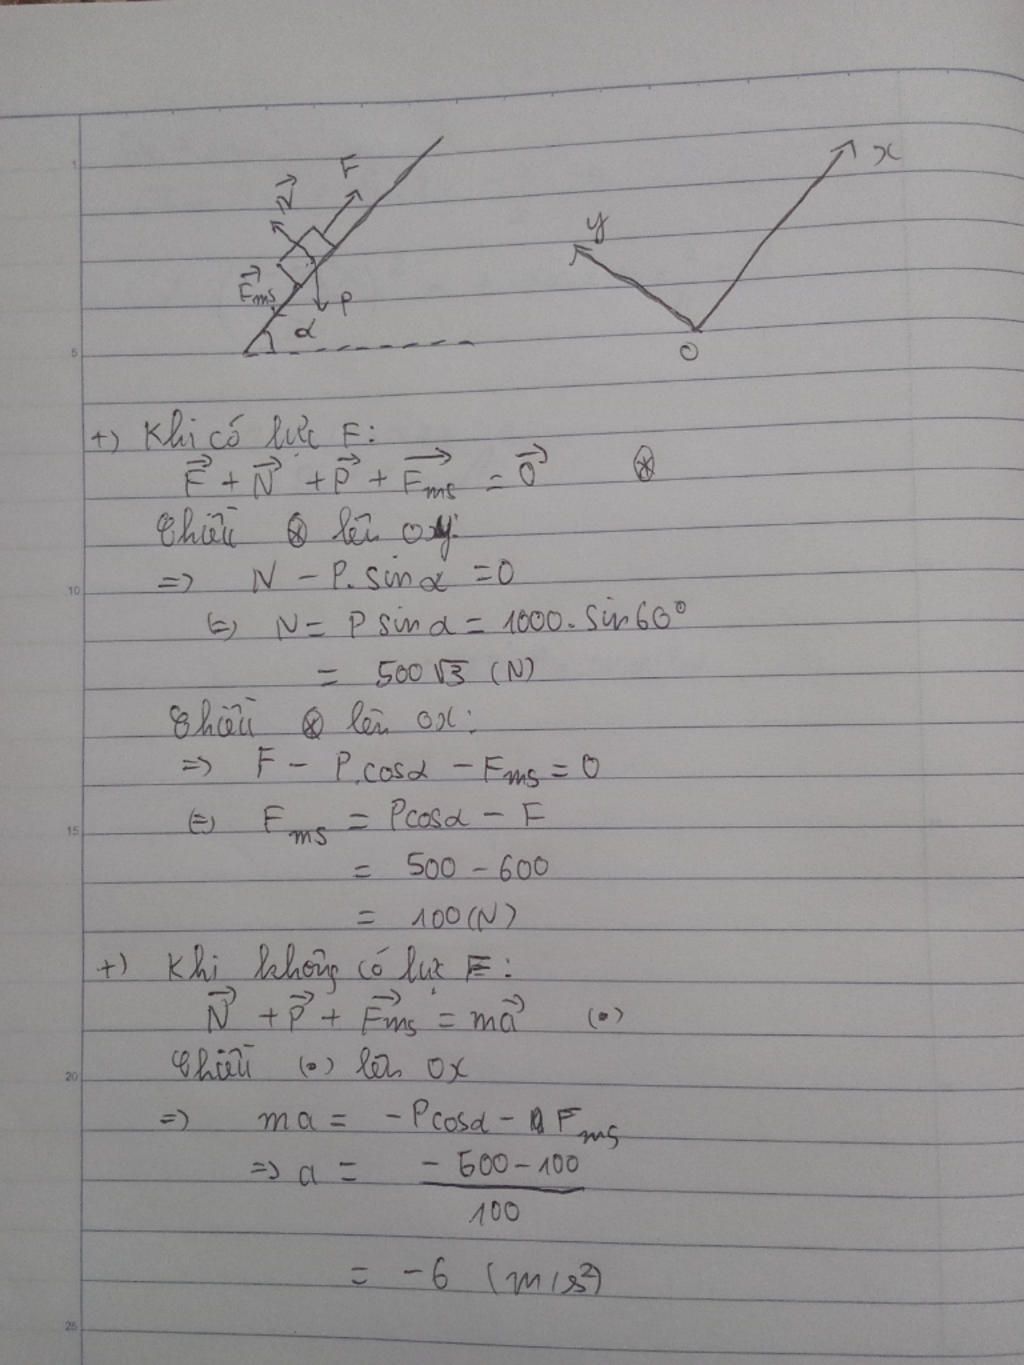 N⃗
F
F⃗ms
P
α
x
y
O
1
5
10
15
20
25
+) Khi có lực F:
F⃗ + N⃗ + P⃗ + F⃗ms = 0⃗ ⊛
Chiếu ⊛ lên oy:
=> N - P.sinα = 0
(=) N = P sinα = 1000.sin60°
= 500√3 (N)
Chiếu ⊛ lên ox:
=> F - P.cosα - Fms = 0
(=) Fms = Pcosα - F
= 500 - 600
= 100(N)
+) Khi không có lực F:
N⃗ + P⃗ + F⃗ms = ma⃗ (•)
Chiếu (•) lên ox
=> ma = -Pcosα - Fms
=> a = (-500-100)/100
= -6 (m/s²)